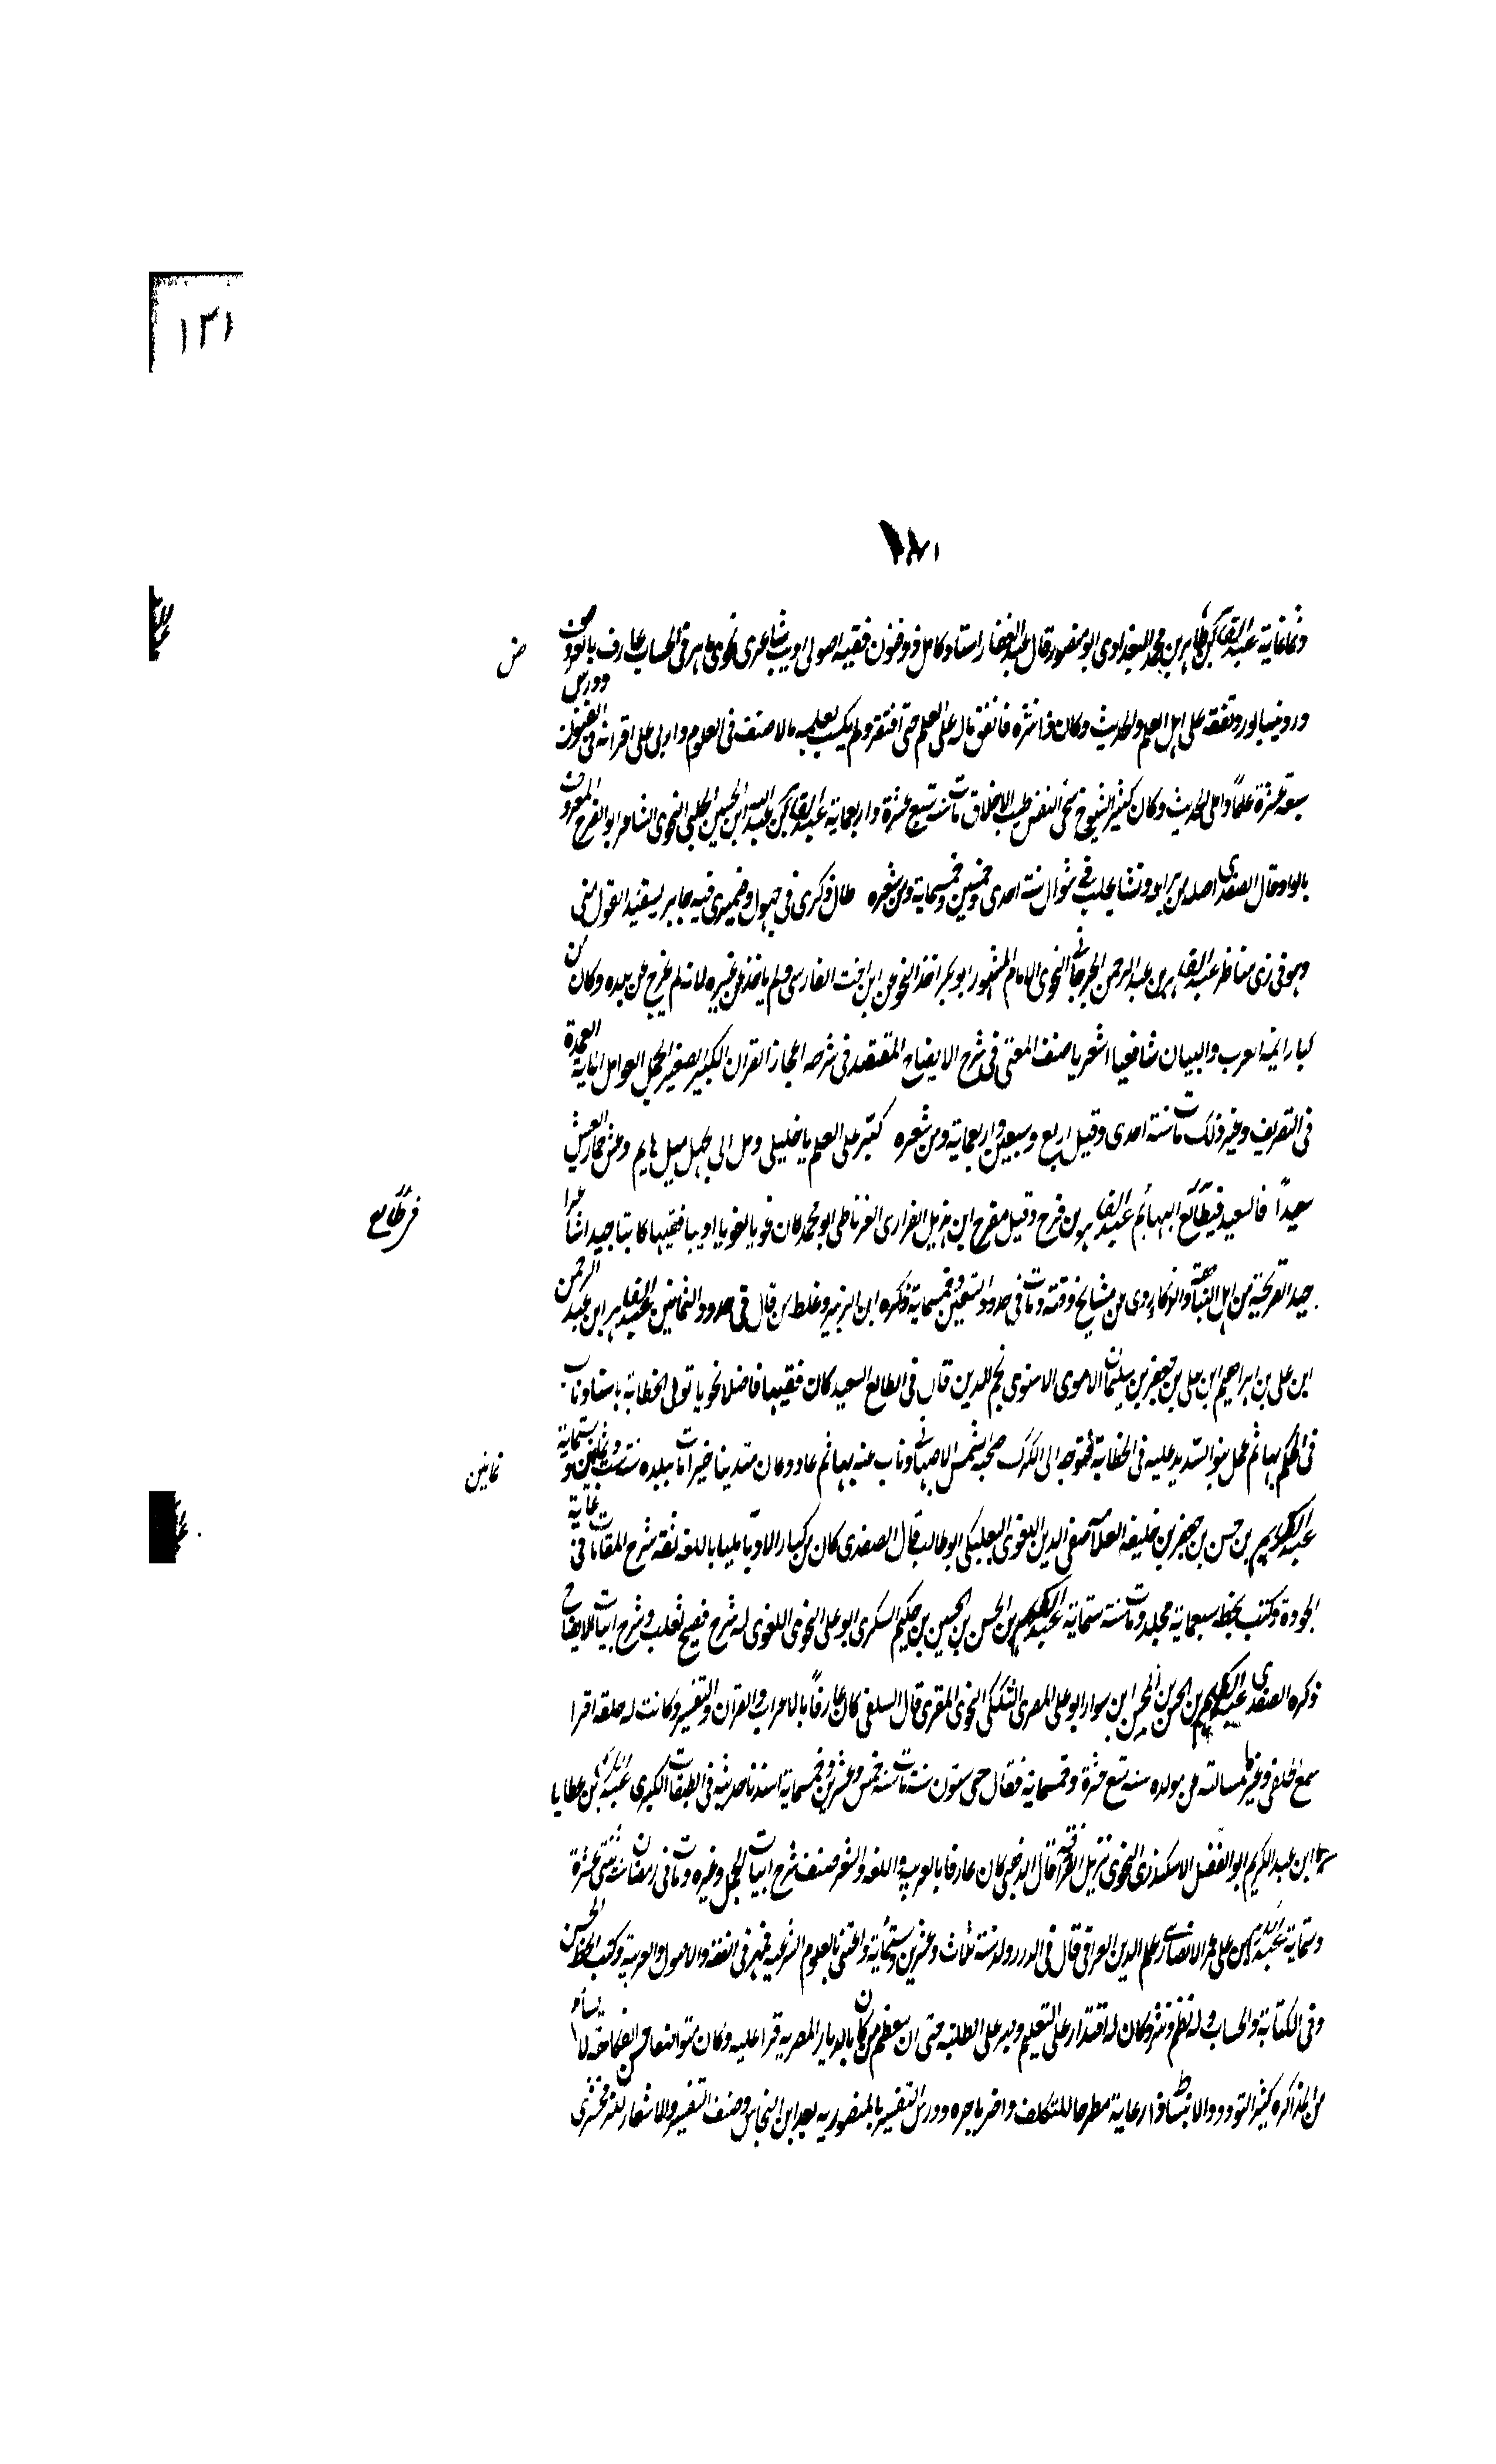 ١٣١
وثمانماية عبد القاهر بن طاهر بن محمد البغدادى ابو منصور قال عبد الغفار استاد كامل ذو فنون فقيه اصولى اديب شاعرى نحوى ماهر فى الحساب عارف بالعروض
ورد نيسابور وتفقه على اهل العلم والحديث وكان ذا ثروة فانفق ماله على العلم حتى افتقر ولم يكسب بعلمه مالا صنف فى العلوم واربى على اقرانه فى الفنون ودرس
سبعة عشرة علما واملى الحديث وكان كثير الشيوخ سخى النفس طيب الاخلاق مات سنة تسع عشرة واربعماية عبد القاهر بن عبد الله ابن الحسين الحلبى النحوى الشاعر ابو الفرج المعروف
بالواوا قال الصفدى اصله من بزاعه ونشا بحلب فى شوال سنة احدى وخمسين وخمسماية ومن شعره طال ذكرى فى جهول وضميرى فيه جابر يستفيد القول منى
وهو فى زى مناظر عبد القاهر بن عبد الرحمن الجرجانى النحوى الامام المشهور ابو بكر اخذ النحو عن ابن اخت الفارسى ولم ياخذ عن غيره لانه لم يخرج عن بلده وكان من
كبار ايمة العرب والبيان شافعيا اشعريا صنف المغنى فى شرح الايضاح المقتصد فى شرحه اعجاز القران الكبير الصغير الجمل العوامل الماية العمدة
فى التصريف وغير ذلك مات سنة احدى وقيل اربع وسبعين واربعماية ومن شعره كبّر على العلم يا خليلى ومل الى الجهل ميل هايم وعش حمارا تعش
سعيدًا فالسعيد فى طالع البهائم عبد القاهر بن فرح وقيل مفرح ابن هزيل الفزارى الغرناطى ابو محمد كان نحويا لغويا اديبا فقيها كاتبا جيدا شاعرا
جيد القريحة من اهل النباهة والذكاء روى عن مشايخ وقته ومات فى حدود التسعين وخمسماية ذكره ابن الزبير وغلط من قال فى حدود الثمانين عبد القاهر ابن عبد الرحمن
ابن على بن ابراهيم ابن على بن جعفر بن سليمان الاموى الاسنوى نجم الدين قال فى الطالع السعيد كان فقيها فاضلا نحويا تولى الخطابة باسنا وناب
فى الحكم بها ثم عمل بنو السديد عليه فى الخطابة فتوجه الى الكرك صحبة شمس الاصبهانى وناب عنه بها ثم عاد وكان متدينا خيرا مات ببلده سنة ست وثمانين وستماية
ثمانين
عبد الكريم بن حسن بن جعفر بن خليفة العلامة صفى الدين اللغوى البعلبكى ابو طالب قال الصفدى كان من كبار الادبا مليا باللغة ثقة شرح المقامات فى غاية
الجودة وكتب بخطه سبعماية مجلد ومات سنة ستماية عبد الكريم بن الحسن بن الحسين بن حكيم السكرى ابو على النحوى اللغوى له شرح فصيح ثعلب وشرح ابيات الايضاح
ذكره الصفدى عبد الكريم بن الحسن بن المحسن ابن سوار ابو على المصرى التككى النحوى المقرى قال السلفى كان عارفًا بالاعراب والقران والتفسير وكانت له حلقة اقرا
سمع الخلعى وغيره سالته عن مولده سنة تسع عشرة وخمسماية فقال حى ستون سنة مات سنة خمس وعشرين وخمسماية اسندنا حديثه فى الطبقات الكبرى عبد الكريم بن عطايا
ابن عبد الكريم ابو الفضل الاسكندرى النحوى نزيل القرافة قال الذهبى كان عارفا بالعربية واللغة والشعر صنف شرح ابيات الجمل وغيره ومات فى رمضان سنة ثنتى عشرة
وستماية عبد الكريم بن على بن عمر الانصارى علم الدين العراقى قال فى الدرر ولد سنة ثلاث وعشرين وستماية واعتنى بالعلوم الشرعية فمهر فى الفقه والاصول والعربية وكتب الخط الحسن
وفى الكتابة والحساب وله نظم ونثر وكان له اقتدار على التعليم وصبر على الطلبة حتى ان معظم من كان بالديار المصرية قرا عليه وكان متواضعا حسن الفكاهة لا يسأم
من المذاكرة كثير التودد والانبساط ذا رعاية مطرحا للتكلف واضر باخره ودرس التفسير بالمنصورية بعد ابن النحاس وصنف التفسير والانتصار للزمخشرى